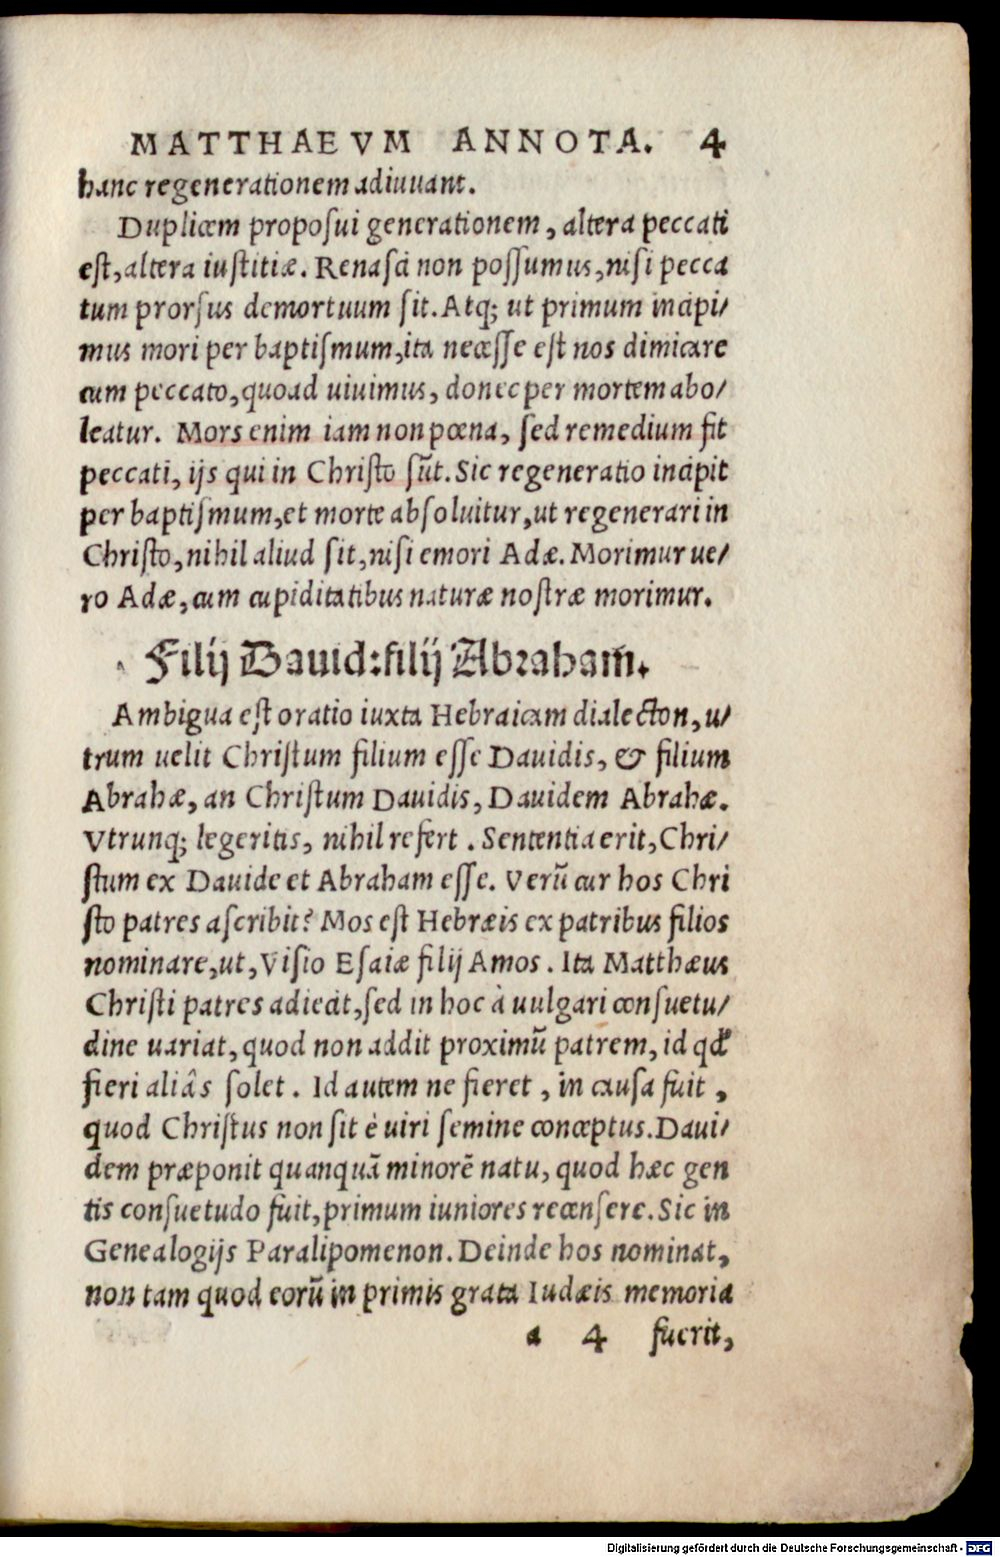 MATTHAEVM ANNOTA. 4
hanc regenerationem adiuuant.
Duplicem proposui generationem, altera peccati
est, altera iustitiæ. Renasci non possumus, nisi pecca
tum prorsus demortuum sit. Atq; ut primum incipi/
mus mori per baptismum, ita necesse est nos dimicare
cum peccato, quoad uiuimus, donec per mortem abo/
leatur. Mors enim iam non pœna, sed remedium fit
peccati, ijs qui in Christo sũt. Sic regeneratio incipit
per baptismum, et morte absoluitur, ut regenerari in
Christo, nihil aliud sit, nisi emori Adæ. Morimur ue/
ro Adæ, cum cupiditatibus naturæ nostræ morimur.
Filij Dauid: filij Abraham̃.
Ambigua est oratio iuxta Hebraicam dialecton, u/
trum uelit Christum filium esse Dauidis, & filium
Abrahæ, an Christum Dauidis, Dauidem Abrahæ.
Vtrunq; legeritis, nihil refert. Sententia erit, Chri/
stum ex Dauide et Abraham esse. Verũ cur hos Chri
sto patres ascribit? Mos est Hebræis ex patribus filios
nominare, ut, Visio Esaiæ filij Amos. Ita Matthæus
Christi patres adiecit, sed in hoc à uulgari consuetu/
dine uariat, quod non addit proximũ patrem, id qđ
fieri aliâs solet. Id autem ne fieret, in causa fuit,
quod Christus non sit è uiri semine conceptus. Daui/
dem præponit quanquã minorẽ natu, quod hæc gen
tis consuetudo fuit, primum iuniores recensere. Sic in
Genealogijs Paralipomenon. Deinde hos nominat,
non tam quod eorũ in primis grata Iudæis memoria
a 4 fuerit,
Digitalisierung gefördert durch die Deutsche Forschungsgemeinschaft - DFG